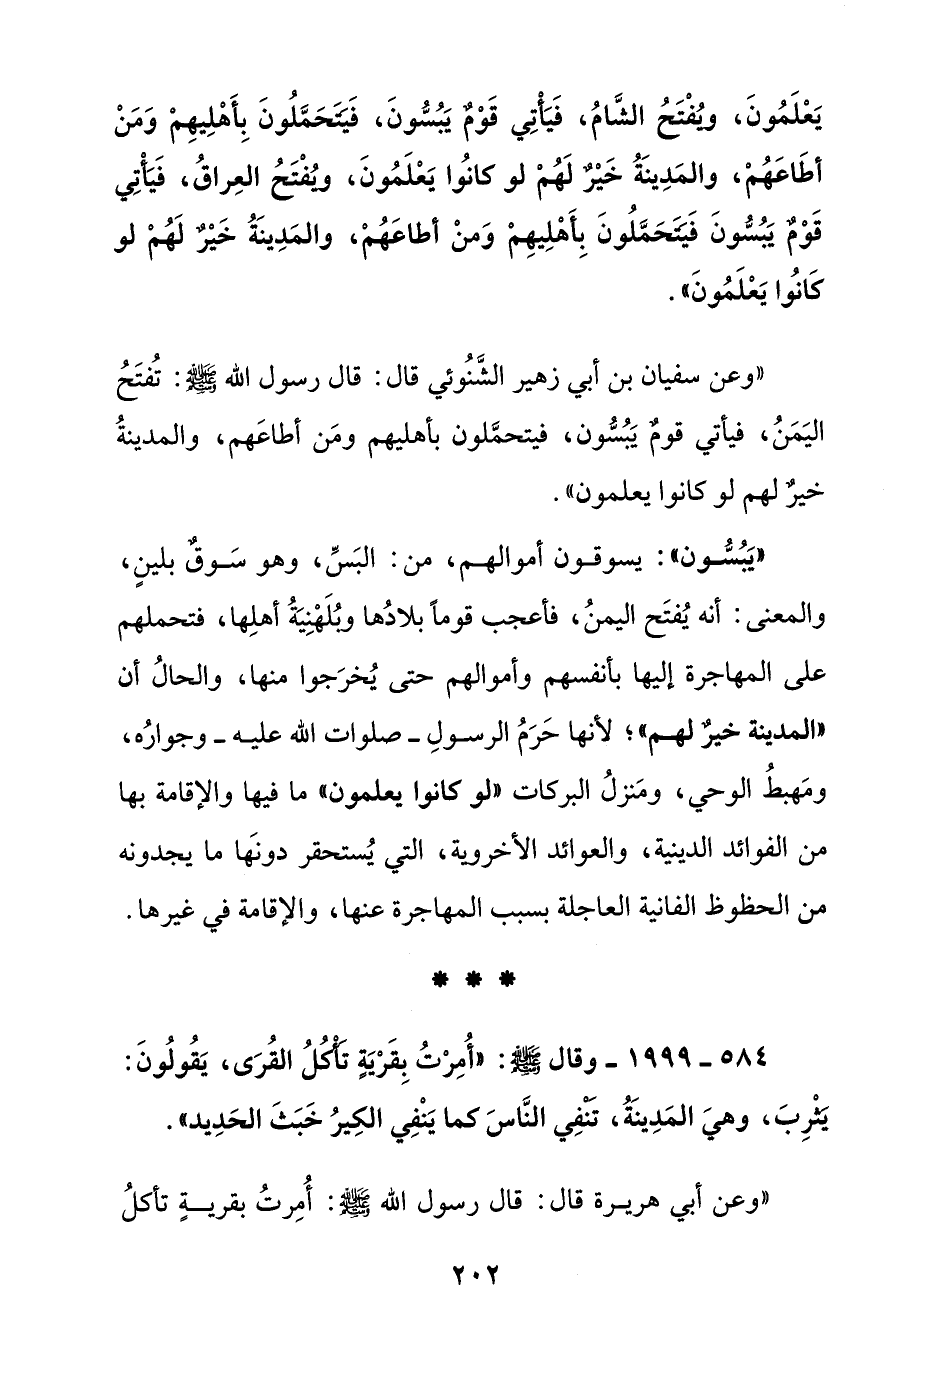 يَعْلَمُونَ، ويُفْتَحُ الشَّامُ، فَيَأْتِي قَوْمٌ يَبُسُّونَ، فَيَتَحَمَّلُونَ بِأَهْلِيهِمْ وَمَنْ
أطَاعَهُمْ، والمَدِينَةُ خَيْرٌ لَهُمْ لو كانُوا يَعْلَمُونَ، ويُفْتَحُ العِراقُ، فَيَأْتِي
قَوْمٌ يَبُسُّونَ فَيَتَحَمَّلُونَ بِأَهْلِيهِمْ وَمنْ أطاعَهُمْ، والمَدِينَةُ خَيْرٌ لَهُمْ لو
كَانُوا يَعْلَمُونَ».
«وعن سفيان بن أبي زهير الشَّنُوئي قال: قال رسول الله ﷺ: تُفتَحُ
اليَمَنُ، فيأتي قومٌ يَبُسُّون، فيتحمَّلون بأهليهم ومَن أطاعَهم، والمدينةُ
خيرٌ لهم لو كانوا يعلمون».
«يَبُسُّـون»: يسوقـون أموالهـم، من: البَسِّ، وهو سَـوقٌ بلينٍ،
والمعنى: أنه يُفتَح اليمنُ، فأعجب قوماً بلادُها وبُلَهْنِيَةُ أهلِها، فتحملهم
على المهاجرة إليها بأنفسهم وأموالهم حتى يُخرَجوا منها، والحالُ أن
«المدينة خيرٌ لهـم»؛ لأنها حَرَمُ الرسـولِ ـ صلوات الله عليـه ـ وجوارُه،
ومَهبطُ الوحي، ومَنزلُ البركات «لو كانوا يعلمون» ما فيها والإقامة بها
من الفوائد الدينية، والعوائد الأخروية، التي يُستحقر دونَها ما يجدونه
من الحظوظ الفانية العاجلة بسبب المهاجرة عنها، والإقامة في غيرها.
* * *
٥٨٤ ـ ١٩٩٩ ـ وقال ﷺ: «أُمِرْتُ بِقَرْيَةٍ تَأْكُلُ القُرَى، يَقُولُونَ:
يَثْرِبَ، وهيَ المَدِينَةُ، تَنْفِي النَّاسَ كما يَنْفِي الكِيرُ خَبَثَ الحَدِيد».
«وعن أبي هريـرة قال: قال رسول الله ﷺ: أُمِرتُ بقريـةٍ تأكلُ
٢٠٢